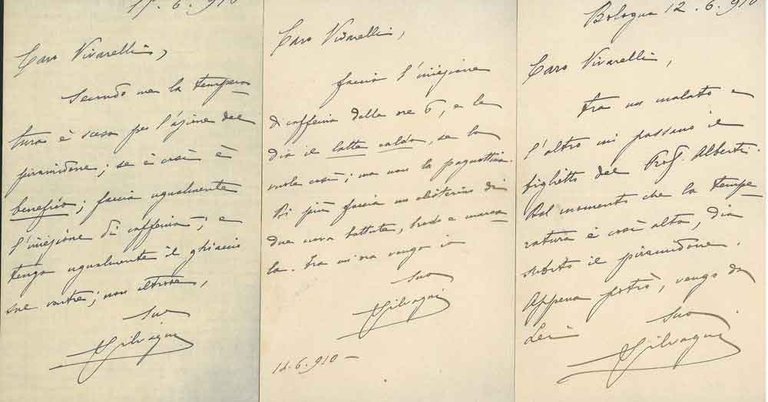 15.6.910
Caro Vivarelli,
Secondo me la tempera
tura è scesa per l'azione del
piramidone; se è così è
benefico; faccia ugualmente
l'iniezione di caffeina, e
tenga ugualmente il ghiaccio
sul ventre; non altrove,
Suo
Silvagni
Caro Vivarelli,
faccia l'iniezione
di caffeina dalle ore 6, e le
dia il latte caldo, se lo
vuole così; ma non la pagnottina.
Di più faccia un clisterino di
due uova sbattute, brodo e marsa
la. Fra un'ora vengo io
Suo
Silvagni
12.6.910
Bologna 12.6.910
Caro Vivarelli,
Fra un malato e
l'altro mi passano il
biglietto del Prof Alberti.
Dal momento che la tempe
ratura è così alta, dia
subito il piramidone.
Appena potrò, vengo da
Lei
Suo
Silvagni